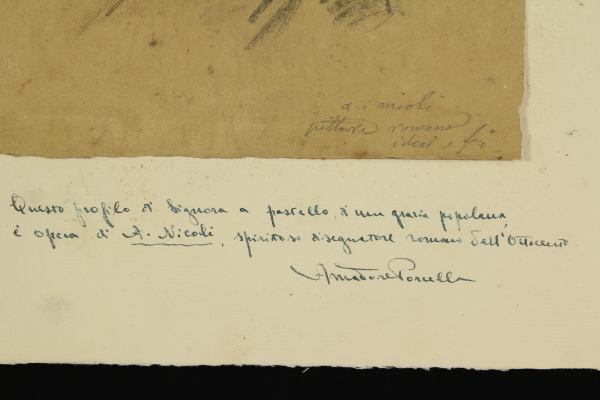 a. nicoli
pittore romano
ideai e feci
Questo profilo di Signora a pastello, di una grazia popolana,
è opera di A. Nicoli, spiritoso disegnatore romano dell'Ottocento
Amadore Porcella